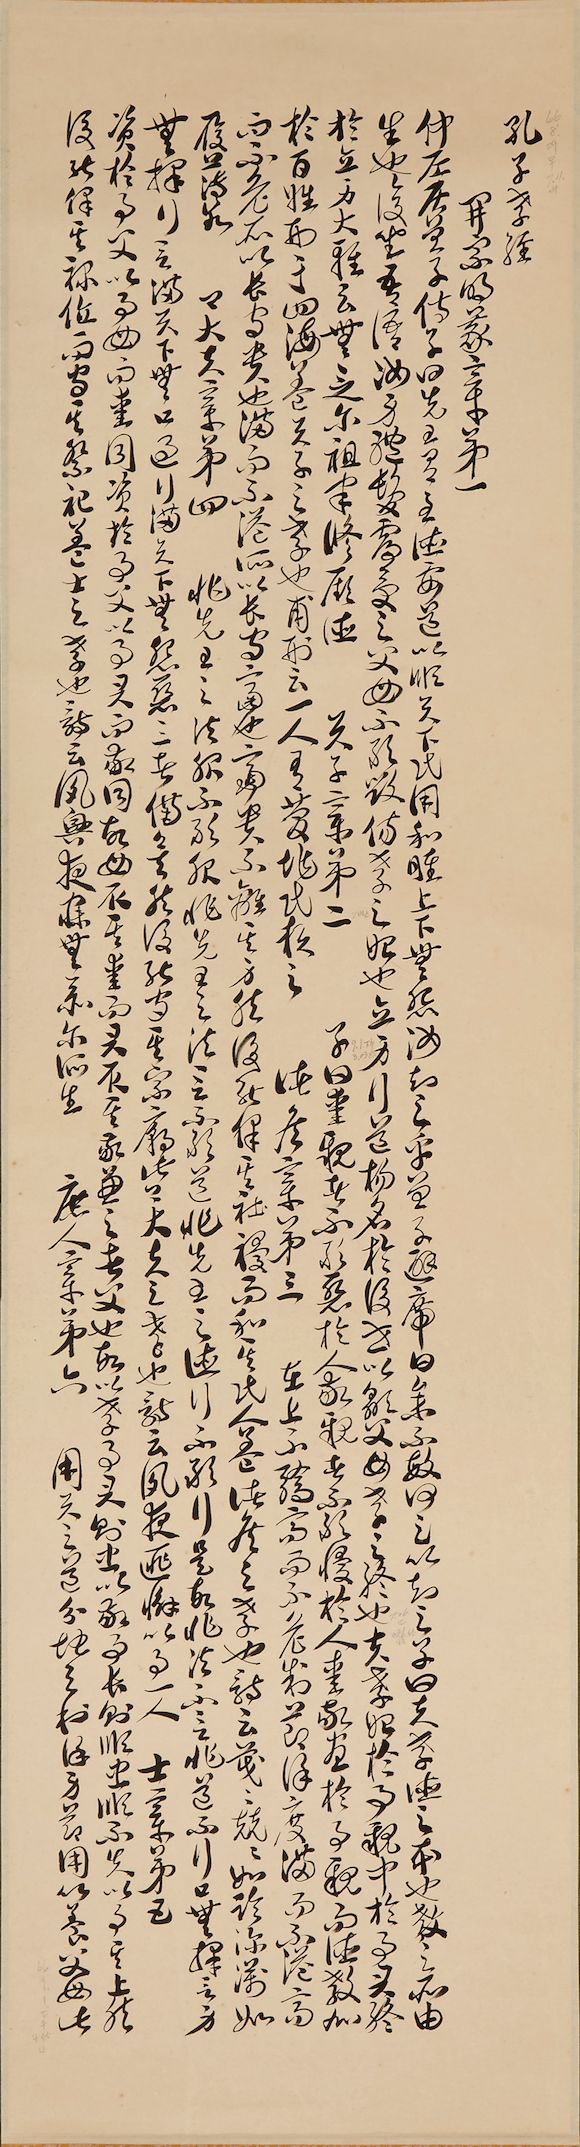 孔子孝經
開宗明義章第一
仲尼居曾子侍子曰先王有至德要道以順天下民用和睦上下無怨汝知之乎曾子避席曰參不敏何足以知之子曰夫孝德之本也教之所由
生也復坐吾語汝身體髮膚受之父母不敢毀傷孝之始也立身行道揚名於後世以顯父母孝之終也夫孝始於事親中於事君終
於立身大雅云無念爾祖聿脩厥德 天子章第二 子曰愛親者不敢惡於人敬親者不敢慢於人愛敬盡於事親而德教加
於百姓刑于四海蓋天子之孝也甫刑云一人有慶兆民賴之 諸侯章第三 在上不驕高而不危制節謹度滿而不溢高
而不危所以長守貴也滿而不溢所以長守富也富貴不離其身然後能保其社稷而和其民人蓋諸侯之孝也詩云戰〻兢〻如臨深淵如
履薄冰 卿大夫章第四 非先王之法服不敢服非先王之法言不敢道非先王之德行不敢行是故非法不言非道不行口無擇言身
無擇行言滿天下無口過行滿天下無怨惡三者備矣然後能守其宗廟蓋卿大夫之孝也詩云夙夜匪懈以事一人 士章第五
資於事父以事母而愛同資於事父以事君而敬同故母取其愛而君取其敬兼之者父也故以孝事君則忠以敬事長則順忠順不失以事其上然
後能保其祿位而守其祭祀蓋士之孝也詩云夙興夜寐無忝爾所生 庶人章第六 用天之道分地之利謹身節用以養父母此